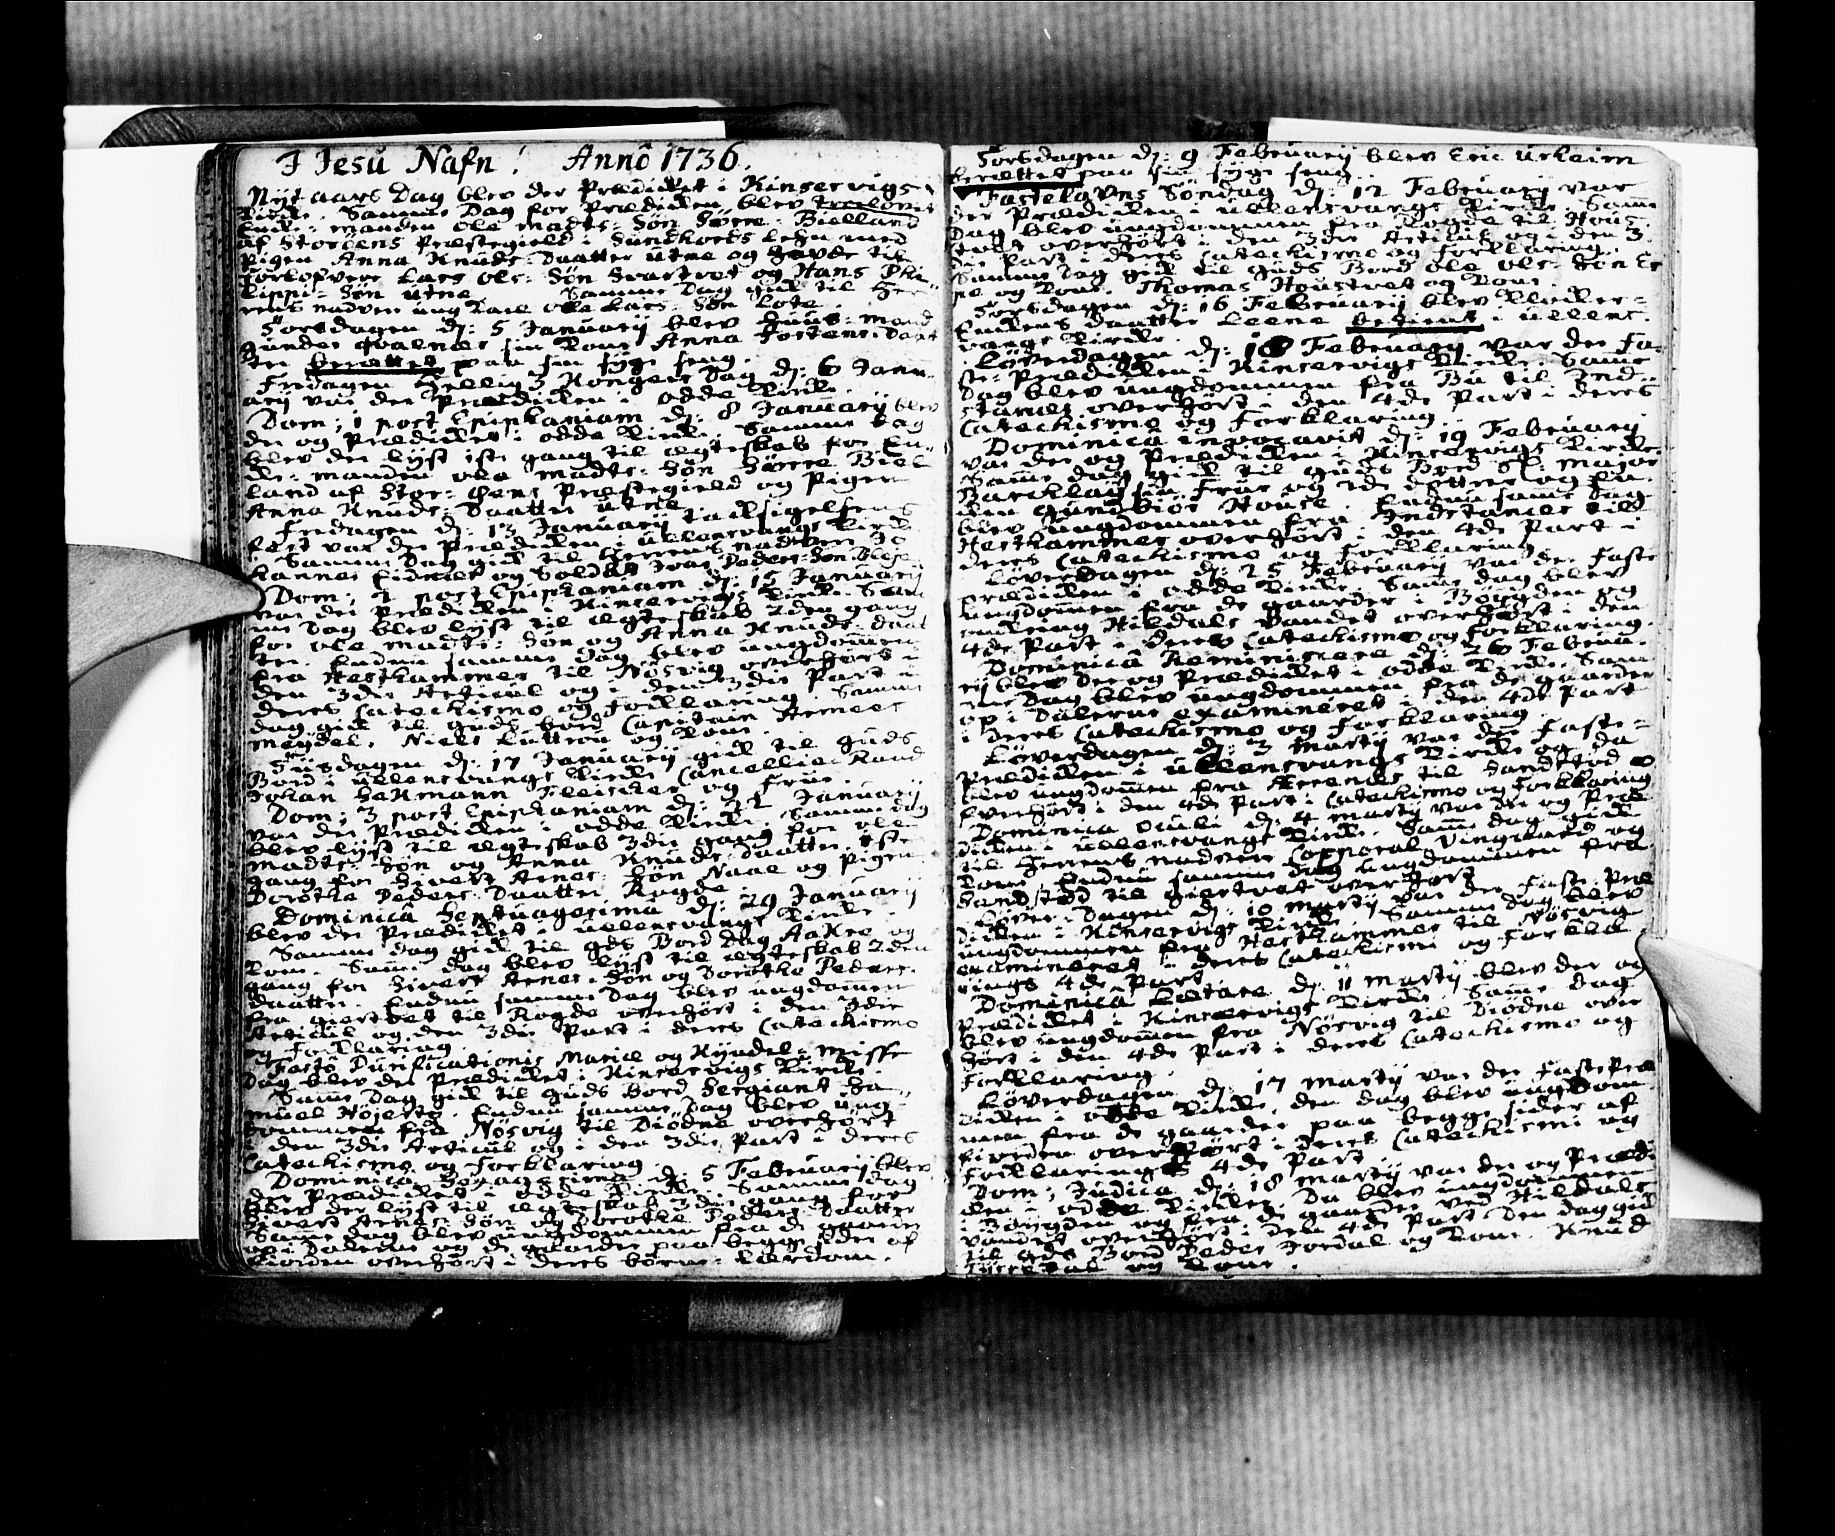 I Jesu Nafn! Anno 1736.
Nyt aars Dag blev der Prædicket i Kinservigs
Kirke. Samme Dag for Prædicken blev troelovet
Enke-manden Ole Madts-Søn Bielland
af Storøens Præstegield i Sundhords Lehn med
Pigen Anna Knuds-Daatter Utne og havde til
Forlofvere Lars Ols-Søn Svartvet og Hans Phi-
lippi-Søn Utne. Samme Dag gik til Her-
rens nadver ung Karl Ole Lars-Søn Lote.
Torsdagen d: 5 Januarij blev Huus-mand
Gunder Qvalnæs sin Kone Anna Jostens-Daat
ter berettet paa sin syge seng.
Fredagen Hellig 3 Kongers Dag d: 6 Janu-
arij var der Prædicken i Odde Kirke.
Dom: 1 post Epiphaniam d: 8 Januarij blev
der og Prædicket i Odde Kirke. Samme Dag
blev der lyst 1ste gang til ægteskab for En-
ke-manden Ole Madts-Søn Biel
land af Stor-Øens Præstegield og Pigen
Anna Knuds-Daatter Utne.
Fredagen d: 13 Januarij Tacksigelsens
fest var der Prædicken i Ullensvangs Kirke
Samme Dag gik til Herrens nadver Jo
hannes Eidnes og Soldat Ivar Peders-Søn
Dom: 2 post Epiphaniam d: 15 Januarij
var der Prædicken i Kinservigs Kirke. Sam
me Dag blev lyst til ægteskab 2den gang
for Ole Madts-Søn og Anna Knuds-Daat
ter. Endnu samme Dag blev ungdommen
fra Hesthammer til Nøsvig overhørt i
den 3die Articul og i den 3die Part i
deres Catechismo og Forklaring. Samme
dag gik til Guds bord Capitain
Meydel. Niels Luttroe og Kone.
Tiisdagen d: 17 Januarij gik til Guds
Bord i Ullensvangs Kirke Cancellie-Raad
Johan Fleischer og Frue.
Dom: 3 post Epiphaniam d: 22 Januarij
var der Prædicken i Odde Kirke. Samme dag
blev lyst til ægteskab 3die gang for Ole
Madts-Søn og Anna Knuds Daatter. 1ste
gang for Sivert Arnes-Søn Naae og Pigen
Dorothe Peders-Daatter Ragde.
Dominica Septuagesima d: 29 Januarij
blev der Prædicket i Ullensvangs Kirke.
Samme dag gik til Gds Bord Dag Aakre og
Kone. Samme dag blev lyst til ægteskab 2den
gang for Sivert Arnes-Søn og Dorothe Peders-
daatter. Endnu samme Dag blev ungdommen
fra Giertvet til Ragde overhørt i den 3die
Articul og den 3die Part i deres Catechismo
og Forklaring.
Festo Purificationis Mariæ og Kyndel-Misse
Dag blev der Prædicket i Kinservigs Kirke.
Samme Dag gik til Guds Bord Sergiant Sa-
muel Højesta. Endnu samme Dag blev ung-
dommen fra Nøsvig til Diødne overhørt
i den 3die Articul og i den 3die Part i deres
Catechismo og Forklaring.
Dominica Sexagesima d: 5 Februarij blev
der Prædicket i Odde Kirke. Samme Dag
blev der lyst til ægteskab 3die gang for
Sivert Arnes-Søn og Dorothe Peders-Daatter
Samme Dag blev ungdommen fra de gaarder
op i Dalerne og de gaarder paa begge sider af
Fiorden overhørt i deres børne-lærdom.
Torsdagen d: 9 Februarij blev Eric Urheim
berettet paa sin syge seng.
Fastelavns Søndag d: 12 Februarij var
der Prædicken i Ullensvangs Kirke. Samme
Dag blev ungdommen fra Ragde til Hous-
tvet overhørt i den 3die Articul og i den 3
die Part i deres Catechismo og Forklaring.
Samme Dag gik til Guds Bord Ole Ols-Søn Es
pe og Kone. Thomas Houstvet og Kone.
Torsdagen d: 16 Februarij blev Klocker-
Enkens daatter Leene betient i Ullens-
vangs Kirke.
Løverdagen d: 18 Februarij var der Fa-
ste-Prædicken i Kinservigs Kirke. Samme
Dag blev ungdommen fra Bu til Ind-
stanes overhørt i den 4de Part i deres
Catechismo og Forklaring.
Dominica Invocavit d: 19 Februarij
var der og Prædicken i Kinservigs Kirke.
Samme dag gik til Guds Bord Sl: Major
Barclaÿ sin Frue og 2de døttre og En-
ken Gundbiør House. Endnu samme dag
blev ungdommen fra Indstanes till
Hesthammer overhørt i den 4de Part i
deres Catechismo og Forklaring.
Løverdagen d: 25 Februarij var der Faste
prædicken i Odde Kirke. Samme dag blev
ungdommen fra de gaarder i Bøygden og
omkring Hildals Vandet overhørt i den
4de Part i deres Catechismo og Forklaring.
Dominica Reminiscere d: 26 Februa-
rij blev der og Prædicket i Odde Kirke. Sam-
me Dag blev ungdommen fra de gaarder
op i Dalerne examineret i den 4de Part
i deres Catechismo og Forklaring.
Løverdagen d: 3 Martij var der Faste-
Prædicken i Ullensvangs Kirke og da
blev ungdommen fra til Sandstød o
verhørt i den 4de Part i Catechismo og Forklaring
Dominica Oculi d: 4 Martij var der og Præ
dicken i Ullensvangs Kirke. Samme dag gik
til Herrens nadver Corporal Vingaard og
Kone. Endnu samme Dag ungdommen fra
Sandstød til Giertvet overhørt.
Løver-Dagen d: 10 Martij var der Faste-Præ
dicken i Kinservigs Kirke. Samme dag blev
ungdommen fra Hesthammer til Nøsvig
examineret i deres Catechismi og Forkla
rings 4de Part.
Dominica Lætare d: 11 Martij blev der og
Prædicket i Kinservigs Kirke. Samme Dag
blev ungdommen fra Nøsvig til Diødne over
hørt i den 4de Part i deres Catechismo og
Forklaring.
Løverdagen d: 17 Martij var der FastePræ
dicken i Odde Kirke. den dag blev ungdom-
men fra de gaarder paa begge sider af
Fiorden overhørt i deres Catechismi og
Forklarings 4de Part.
Dom: Judica d: 18 Martij var der og Prædi
cken i Odde Kirke. Da blev ungdommen
i Bøygden og fra de gaarder ved Hildals
vandet overhørt i den 4de Part. Den dag gik
til Gds Bord Peder Jordal og Kone. Knud
og Kone.